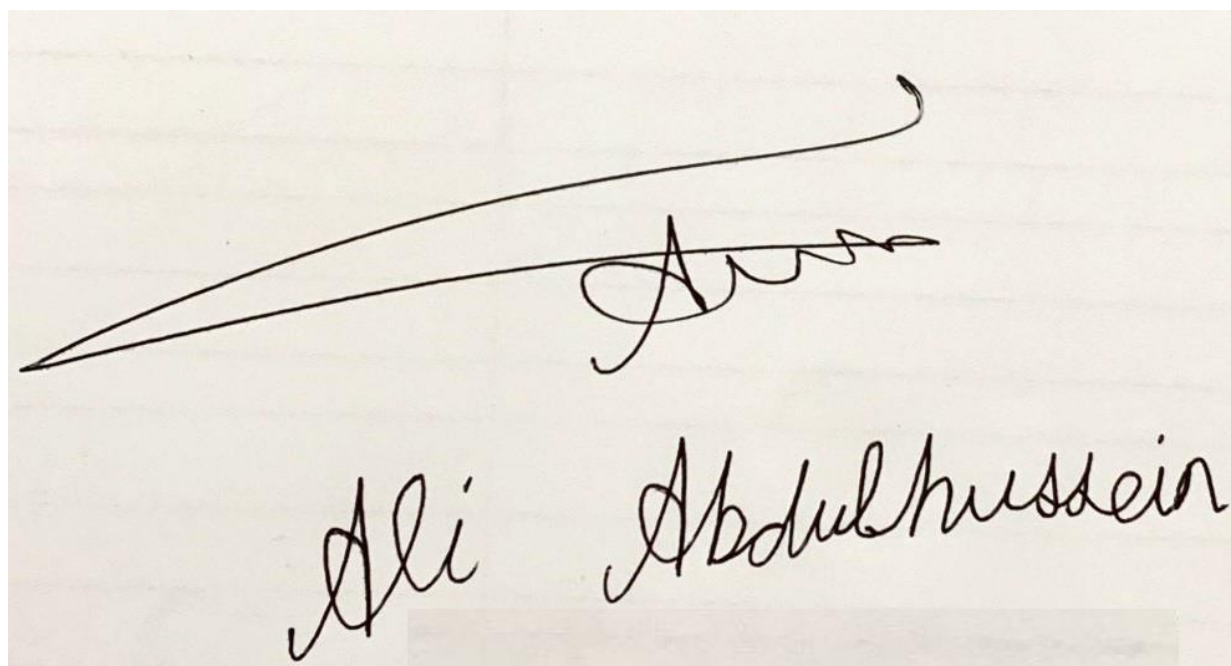 Ali Abdulhussein